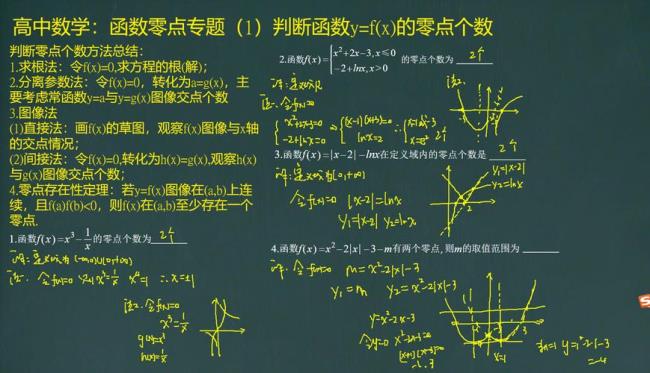 高中数学：函数零点专题（1）判断函数y=f(x)的零点个数
判断零点个数方法总结：
1.求根法：令f(x)=0,求方程的根(解)；
2.分离参数法：令f(x)=0，转化为a=g(x)，主
要考虑常函数y=a与y=g(x)图像交点个数
3.图像法
(1)直接法：画f(x)的草图，观察f(x)图像与x轴
的交点情况；
(2)间接法：令f(x)=0,转化为h(x)=g(x),观察h(x)
与g(x)图像交点个数；
4.零点存在性定理：若y=f(x)图像在(a,b)上连
续，且f(a)f(b)<0，则f(x)在(a,b)至少存在一个
零点.
1.函数f(x)=x³-1/x的零点个数为 2个
令f(x)=0 x³=1/x x⁴=1 ∴x=±1
法2. 令f(x)=0
x³=1/x
g(x)=x³
h(x)=1/x
2.函数f(x)={x²+2x-3,x≤0 的零点个数为 2个
-2+lnx,x>0
法2.
令f(x)=0
{x²+2x-3=0 ⇒ {(x-1)(x+3)=0
-2+lnx=0 lnx=2
3.函数f(x)=|x-2|-lnx在定义域内的零点个数是 2个
令f(x)=0 |x-2|=lnx
y₁=|x-2| y₂=lnx
y₁=|x-2|
y₂=lnx
2
4.函数f(x)=x²-2|x|-3-m有两个零点,则m的取值范围为
令f(x)=0 m=x²-2|x|-3
y₁=m y₂=x²-2|x|-3
y=x²-2x-3
令y=0 x²-2x-3=0
(x+1)(x-3)=0
-1, 3
x=1
x=1 y=1²-2·1-3
=-4